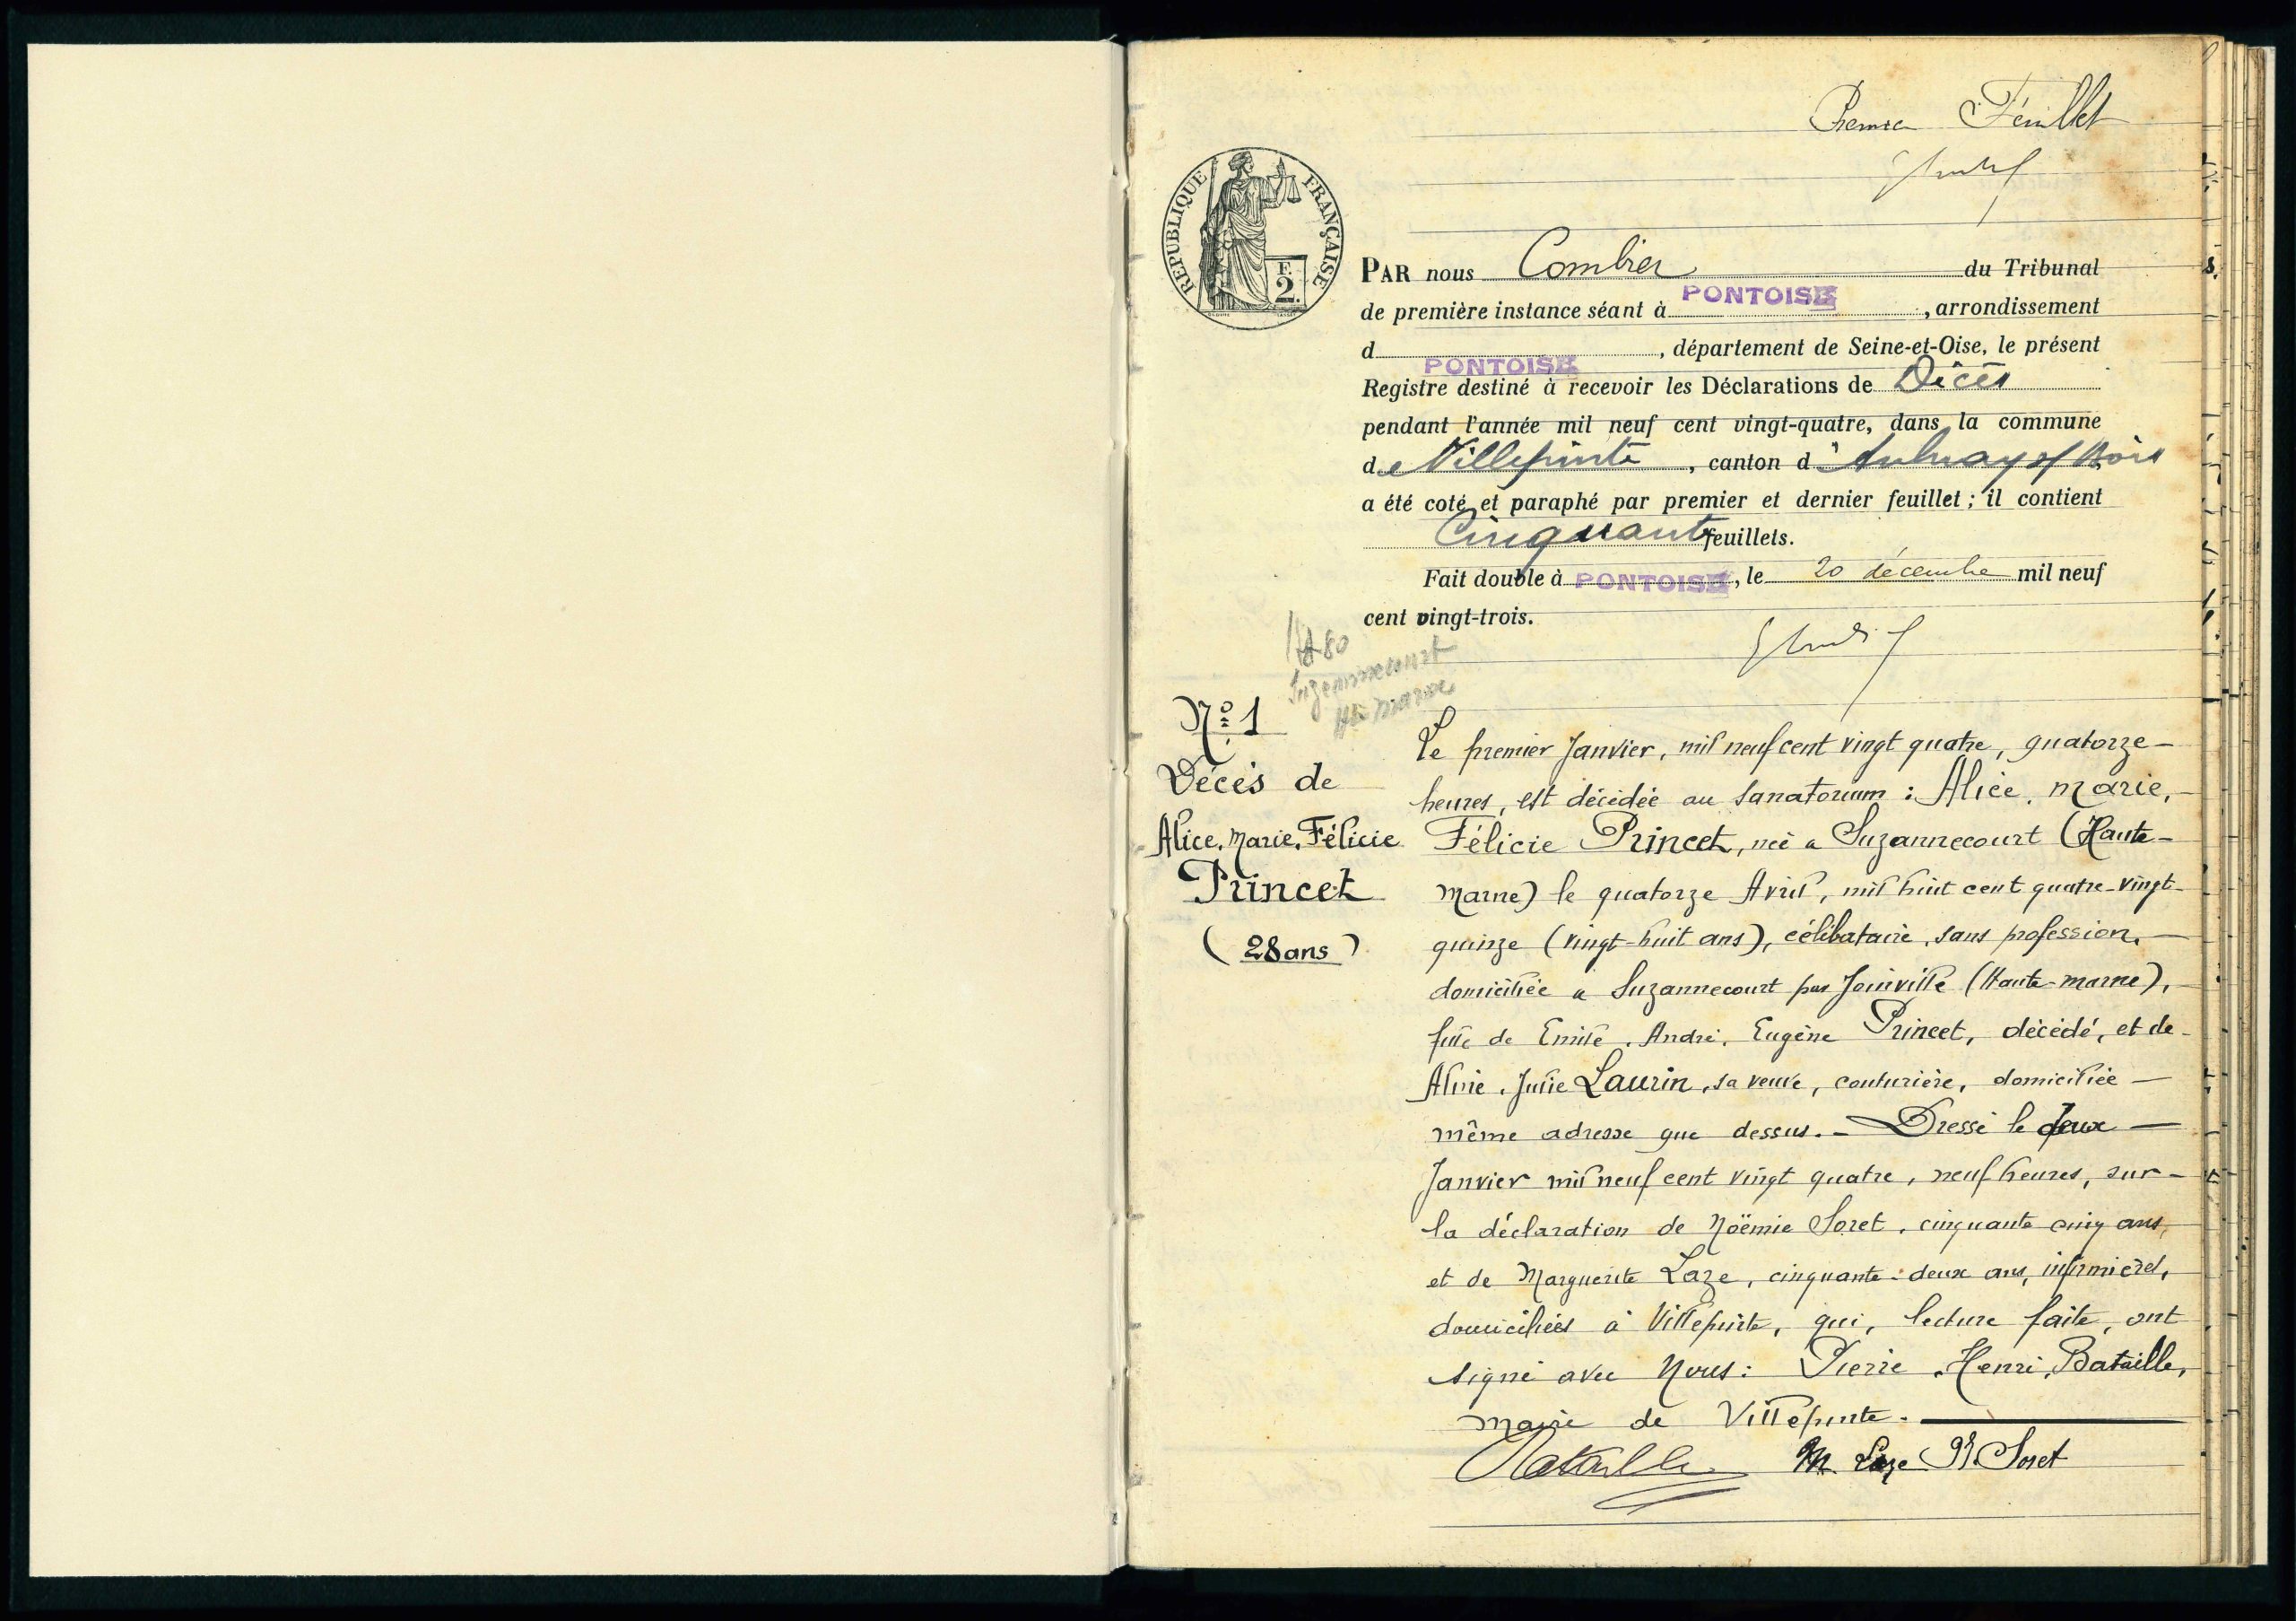 Premier Feuillet
REPUBLIQUE FRANÇAISE
F.
2.
PAR nous Combier du Tribunal
de première instance séant à PONTOISE, arrondissement
d PONTOISE, département de Seine-et-Oise, le présent
Registre destiné à recevoir les Déclarations de Décès
pendant l'année mil neuf cent vingt-quatre, dans la commune
de Villepinte, canton d'Aulnay s/ Bois
a été coté et paraphé par premier et dernier feuillet ; il contient
Cinquante feuillets.
Fait double à PONTOISE, le 20 décembre mil neuf
cent vingt-trois.
Suzannecourt
Hte Marne
Nº 1
Décès de
Alice, Marie, Félicie
Princet
(28 ans)
Le premier Janvier, mil neuf cent vingt quatre, quatorze-
heures, est décédée au Sanatorium : Alice, Marie,-
Félicie Princet, née a Suzannecourt (Haute-
Marne) le quatorze Avril, mil huit cent quatre-vingt-
quinze (vingt-huit ans), célibataire, sans profession,-
domiciliée a Suzannecourt par Joinville (Haute-Marne),
fille de Emile, André, Eugène Princet, décédé, et de-
Julie Laurin, sa veuve, couturière, domiciliée-
même adresse que dessus.- Dressé le deux-
Janvier mil neuf cent vingt quatre, neuf heures, sur-
la déclaration de Noëmie Soret, cinquante cinq ans,
et de Marguerite Laze, cinquante-deux ans, infirmières,
domiciliées à Villepinte, qui, lecture faite, ont
signé avec Nous : Pierre, Henri, Bataille,
maire de Villepinte.
Bataille M. Laze N. Soret